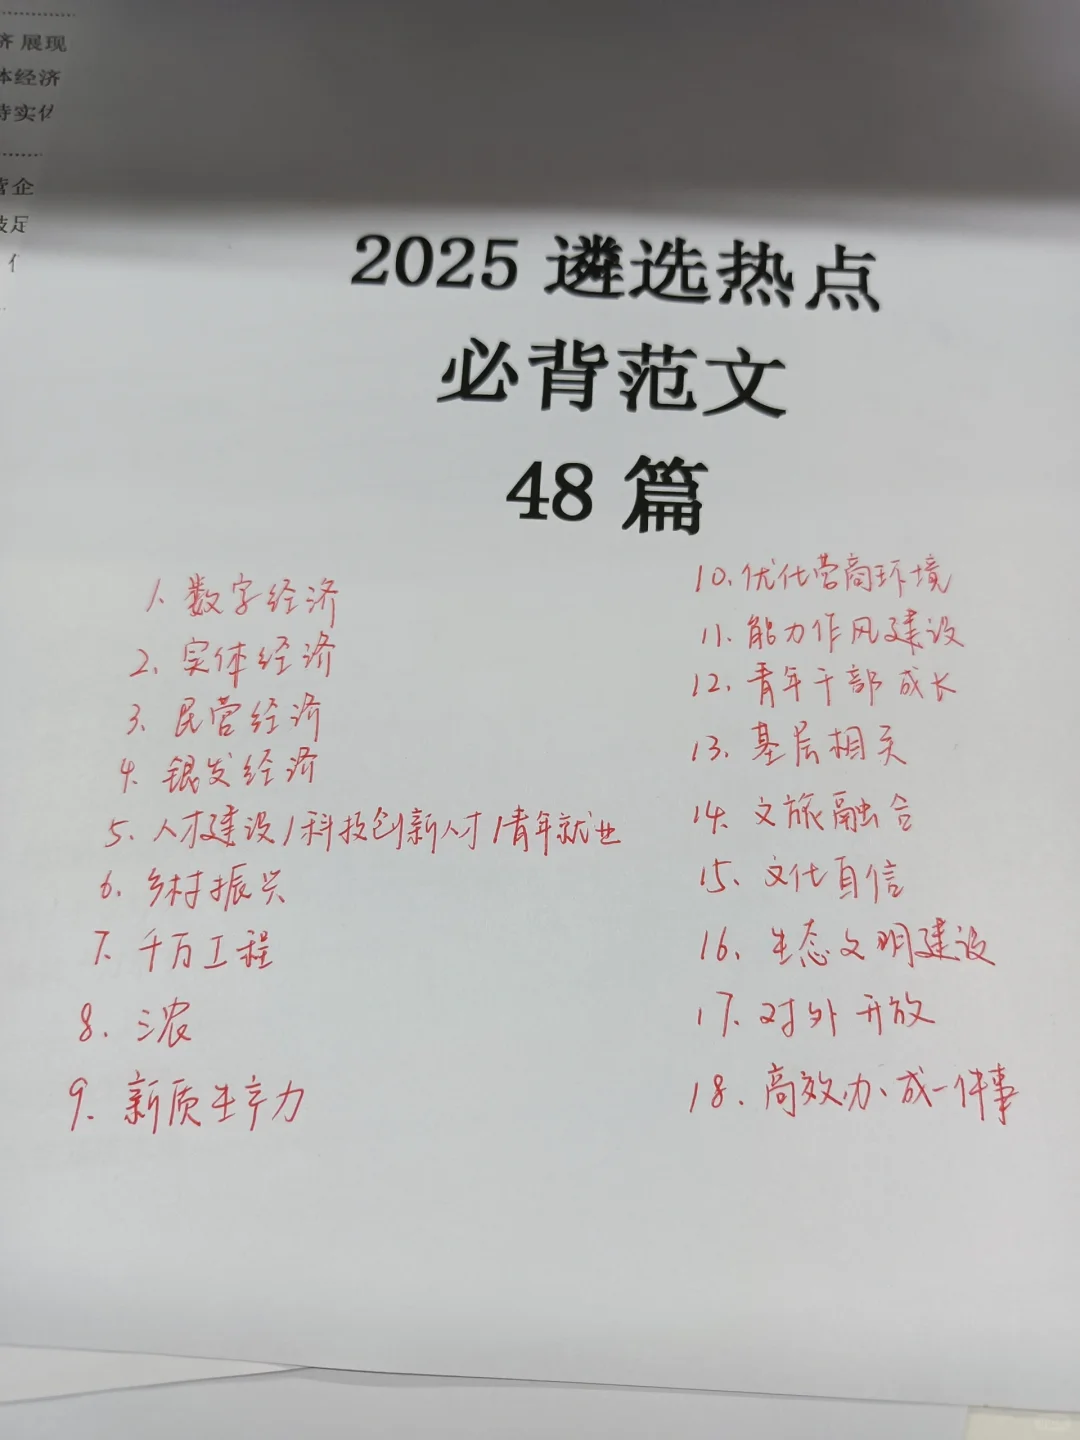 济 展现
体经济
持实
营企
技足
2025 遴选热点
必背范文
48 篇
1. 数字经济
2. 实体经济
3. 民营经济
4. 银发经济
5. 人才建设/科技创新人才/青年就业
6. 乡村振兴
7. 千万工程
8. 三农
9. 新质生产力
10. 优化营商环境
11. 能力作风建设
12. 青年干部成长
13. 基层相关
14. 文旅融合
15. 文化自信
16. 生态文明建设
17. 对外开放
18. 高效办、成一件事